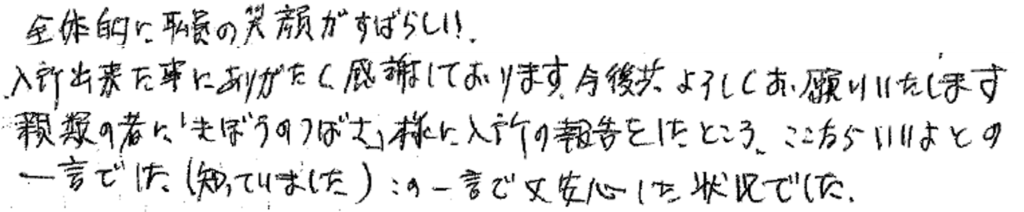 全体的に、職員の笑顔がすばらしい!.
入所出来た事にありがたく感謝しております。今後共よろしくお願いいたします
親類の者に、「きぼうのつばさ」様に入所の報告をしたところ、ここならいいよとの
一言でした(知っていました)この一言で又安心した状況でした.